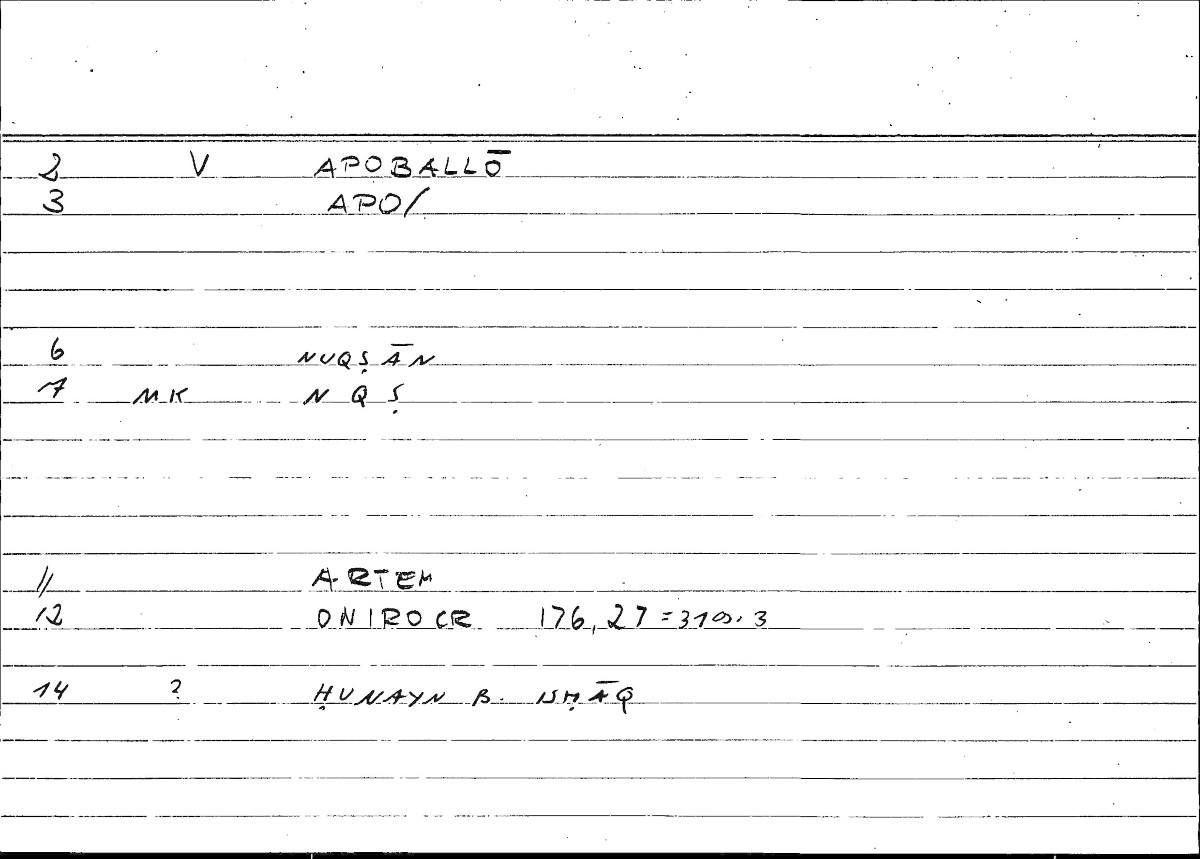 2 V APOBALLŌ
3 APO/
6 NUQṢĀN
7 MK N Q Ṣ
11 ARTEM
12 ONIROCR 176,27 = 319,3
14 ? ḤUNAYN B. ISḤĀQ